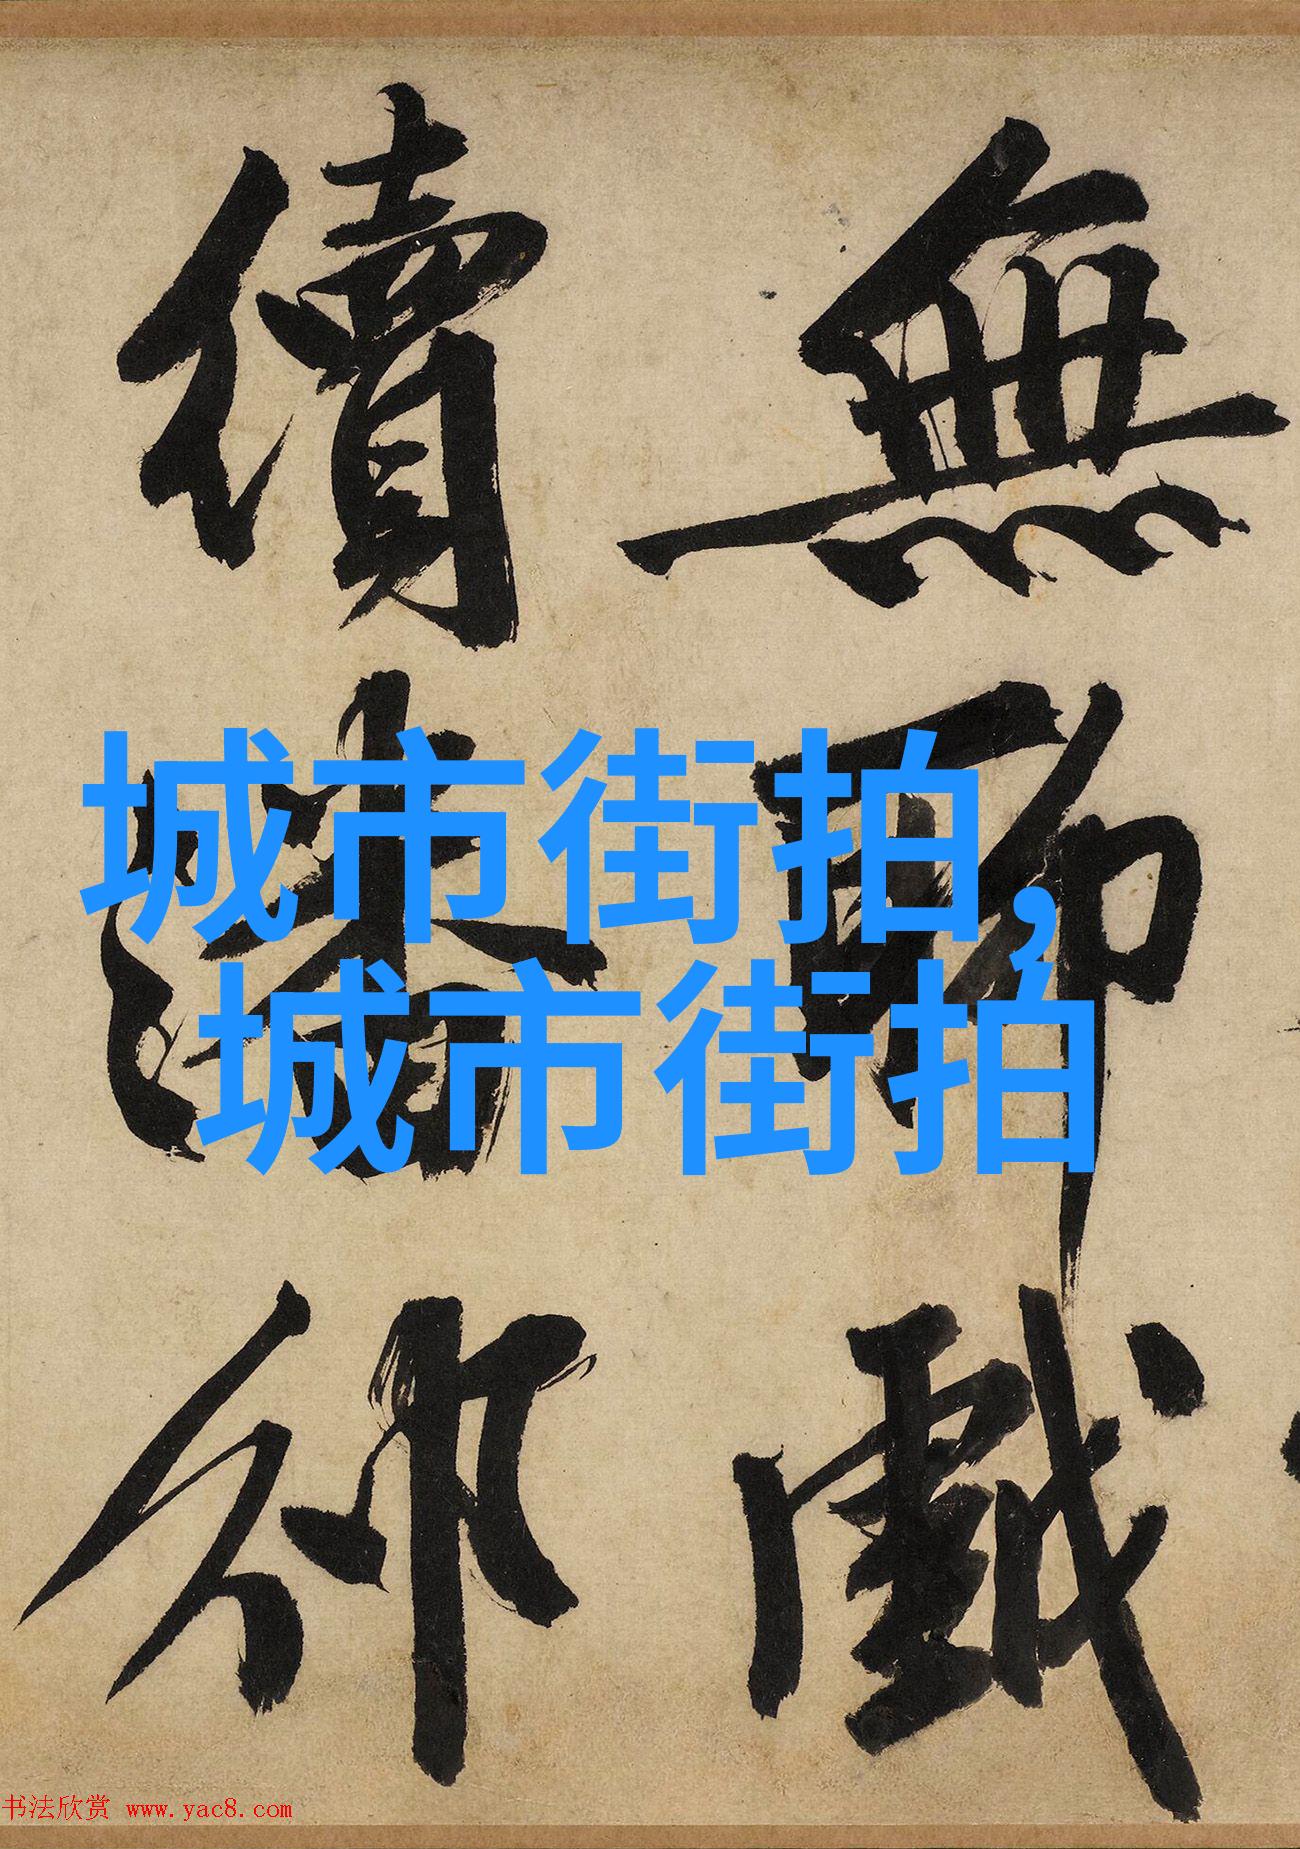 無聊戲
續潘邠
城市街拍,
城市街拍
书法欣赏 www.yac8.com